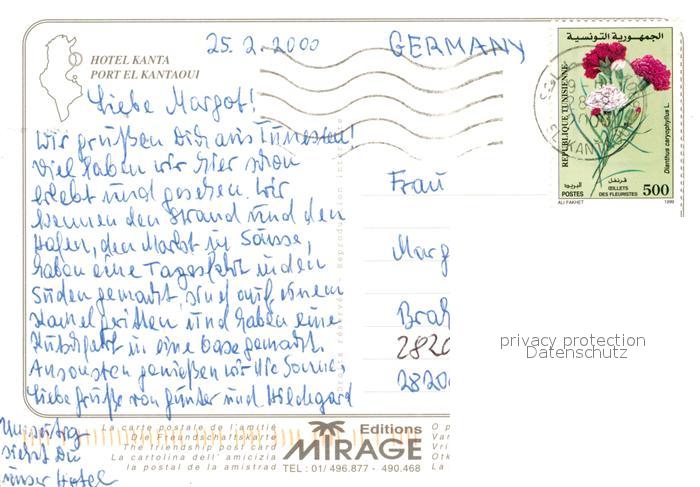 25. 2. 2000
GERMANY
HOTEL KANTA
PORT EL KANTAOUI
Liebe Margot!
Wir grüßen Dich aus Tunesien!
Viel haben wir hier schon
erlebt und gesehen. Wir
kennen den Strand und den
Hafen, den Markt in Sousse,
haben eine Tagesfahrt in den
Süden gemacht, sind auf einem
Kamel geritten und haben eine
Kutschfahrt in eine Oase gemacht.
Ansonsten genießen wir die Sonne,
Liebe Grüße von Günter und Hildegard
Umseitig
siehst Du
unser Hotel
Frau
Marg
Brah
2820
2820
privacy protection
Datenschutz
الجمهورية التونسية
REPUBLIQUE TUNISIENNE
Dianthus caryophyllus L.
قرنفل
البريد
POSTES
ŒILLETS
DES FLEURISTES
500
ALI FAKHET
1999
Reproduction
Droits réservés
La carte postale de l'amitié
Die Freundschaftskarte
The friendship post card
La cartolina dell' amicizia
la postal de la amistrad
Editions
MIRAGE
TEL : 01/ 496.877 - 490.468